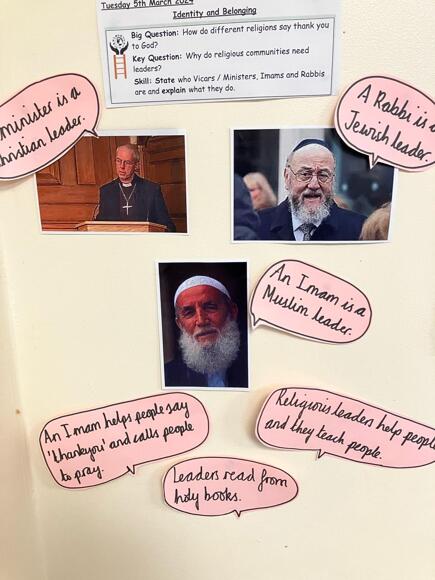 Tuesday 5th March 2024
Identity and Belonging
Big Question: How do different religions say thank you
to God?
Key Question: Why do religious communities need
leaders?
Skill: State who Vicars / Ministers, Imams and Rabbis
are and explain what they do.
minister is a
christian leader.
A Rabbi is a
Jewish leader.
An Imam is a
Muslim leader.
An Imam helps people say
'thankyou' and calls people
to pray.
Religious leaders help people
and they teach people.
Leaders read from
holy books.